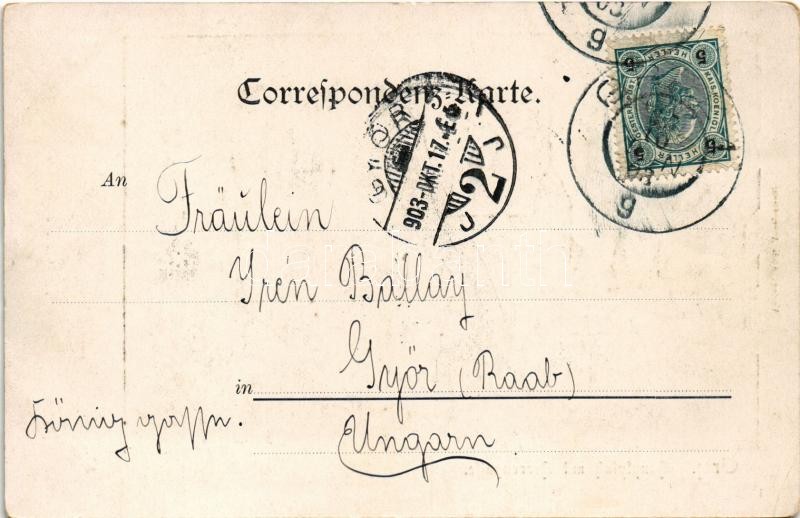 Correspondenz-Karte.
GYŐR
903-OKT.17.
2
An Fräulein
Irén Ballay
in Győr (Raab)
Königgasse.
Ungarn
5 HELLER 5
5 HELLER 5
KAIS. KOENIGL.
9
9